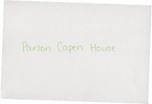 Parson Capen House